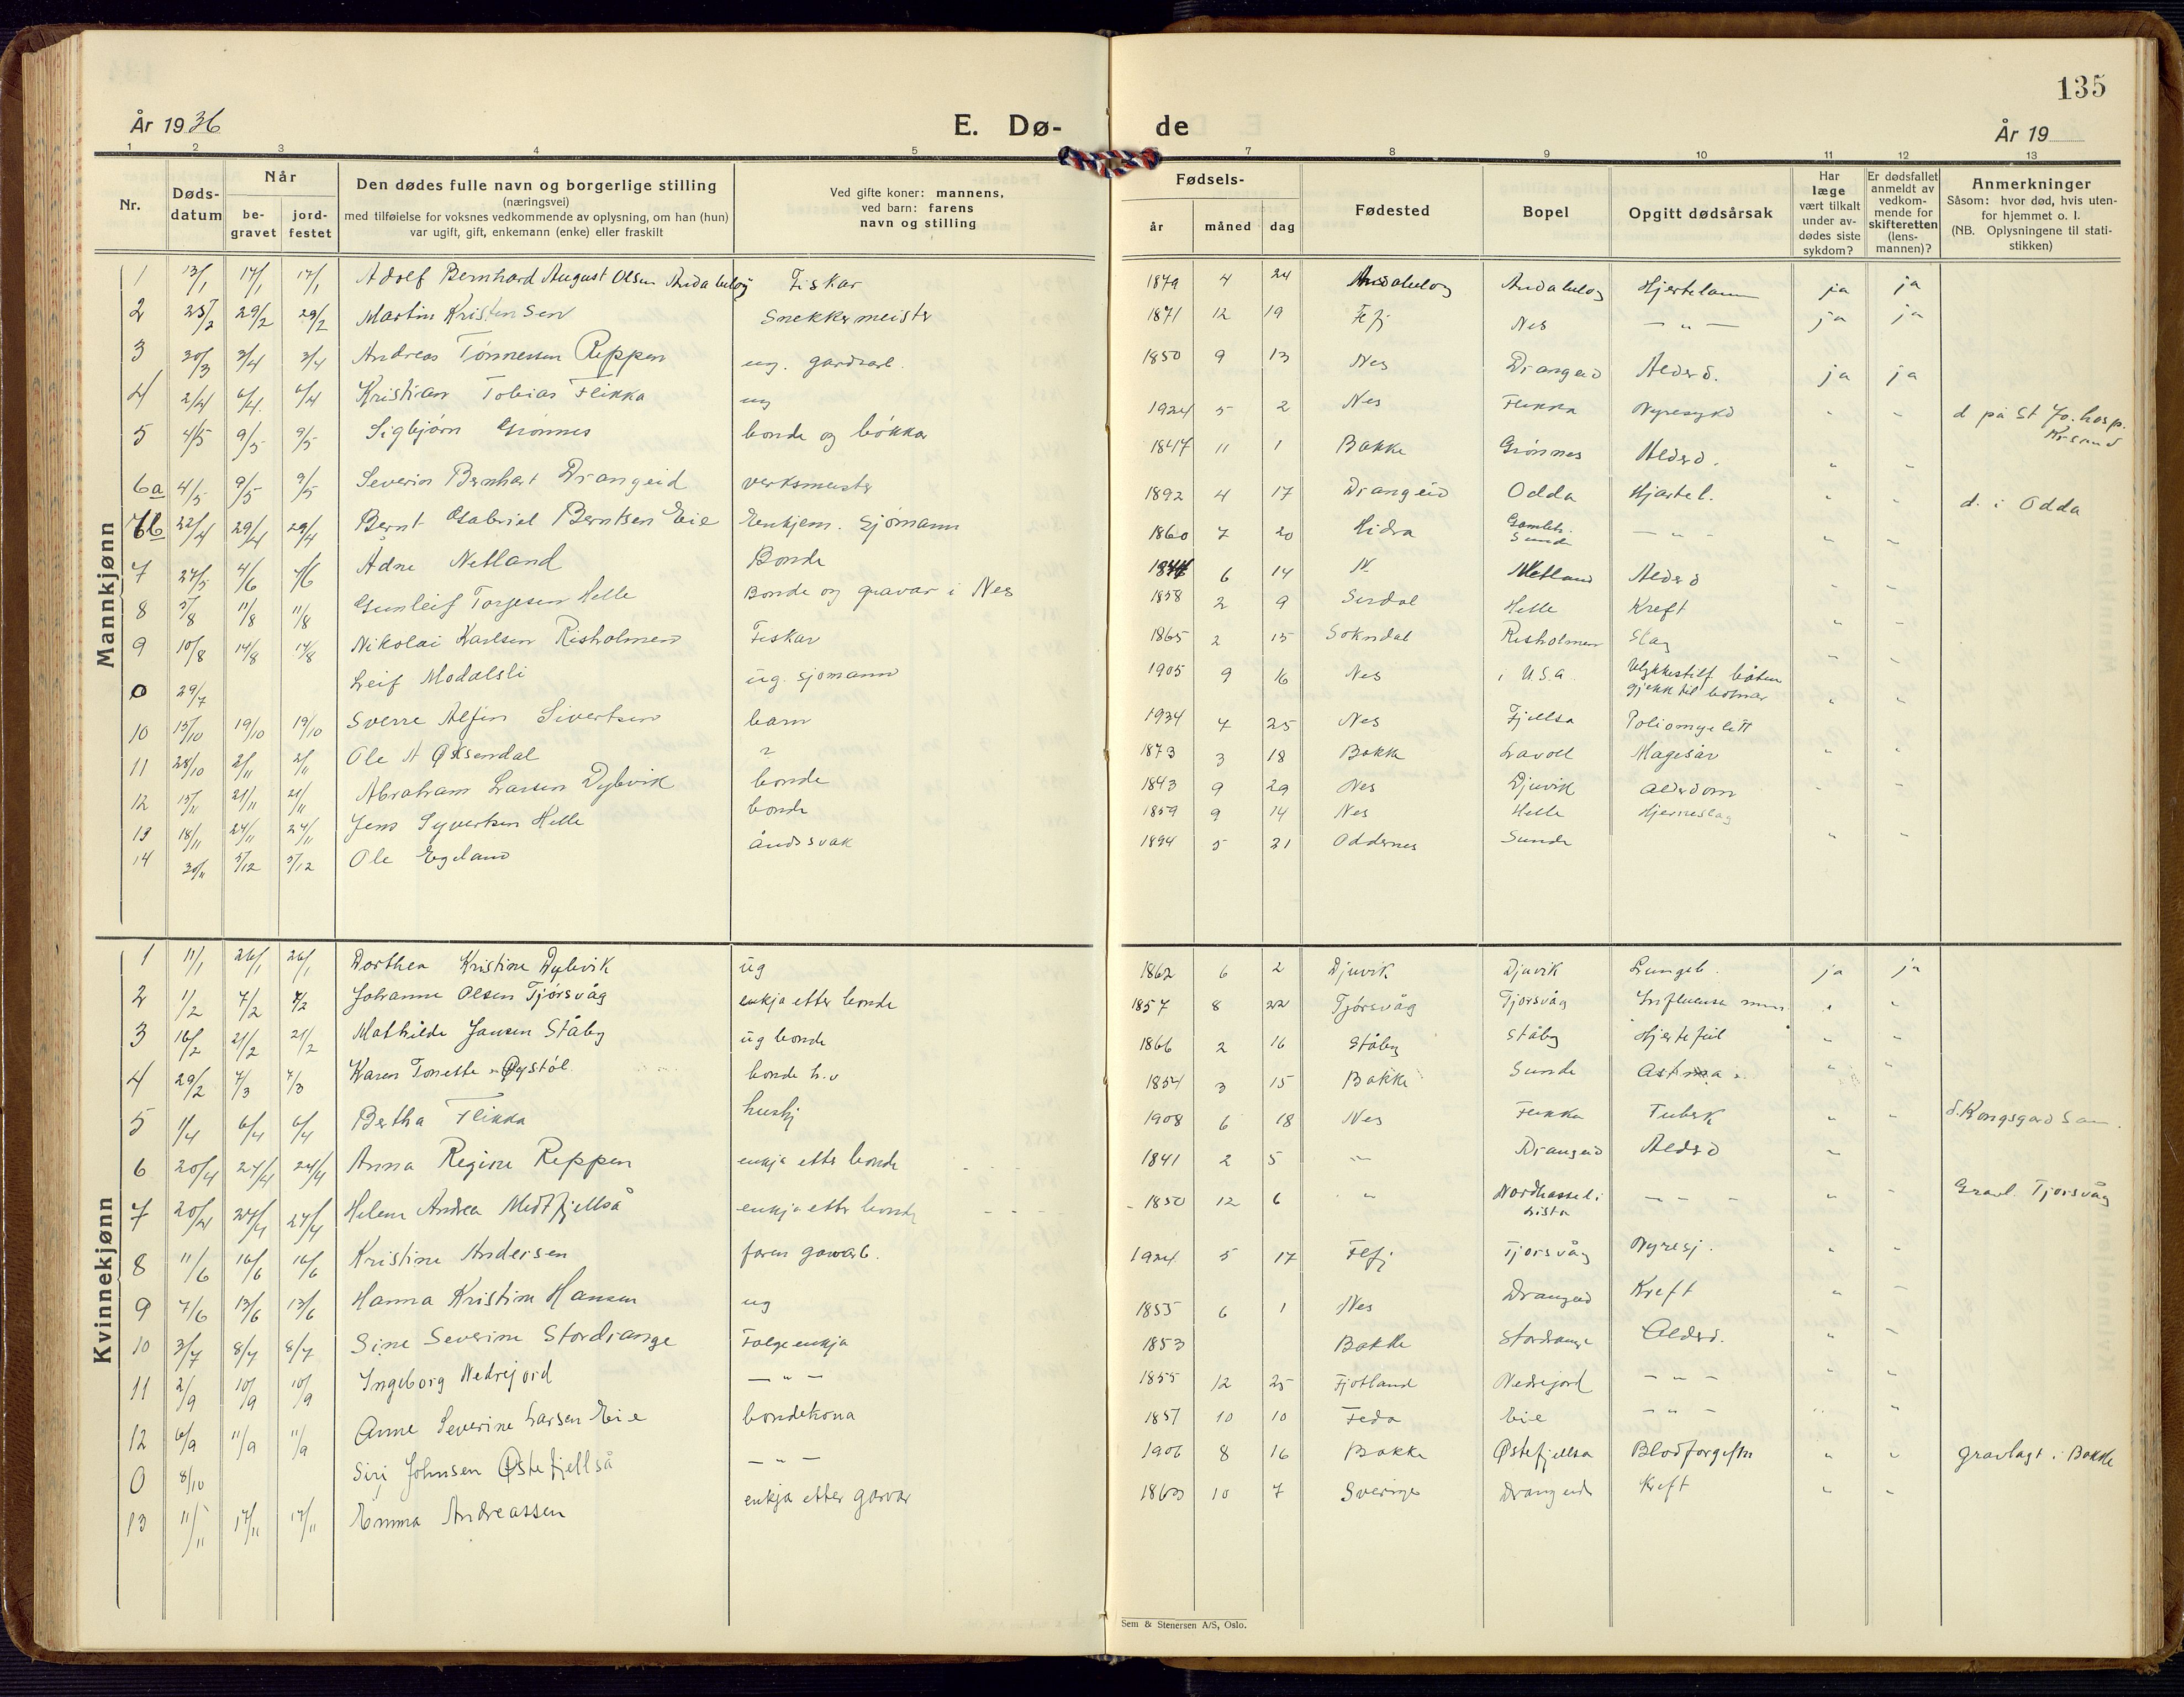 135
År 1936
E. Dø-
de
År 19
1 2 3 4 5 7 8 9 10 11 12 13
Nr.
Døds-
datum
Når
be-
gravet
jord-
festet
Den dødes fulle navn og borgerlige stilling
(næringsvei)
med tilføielse for voksnes vedkommende av oplysning, om han (hun)
var ugift, gift, enkemann (enke) eller fraskilt
Ved gifte koner: mannens,
ved barn: farens
navn og stilling
Fødsels-
år måned dag
Fødested
Bopel
Opgitt dødsårsak
Har
læge
vært tilkalt
under av-
dødes siste
sykdom?
Er dødsfallet
anmeldt av
vedkom-
mende for
skifteretten
(lens-
mannen)?
Anmerkninger
Såsom: hvor død, hvis uten-
for hjemmet o. l.
(NB. Oplysningene til stati-
stikken)
Mannkjønn
1 13/1 17/1 17/1 Adolf Bernhard August Olsen Andabeløy Fiskar 1879 4 24 Andabeløy Andabeløy ja ja
2 25/2 29/2 29/2 Martin Kristensen Snekkermeister 1871 12 19 Nes — " — ja ja
3 30/3 3/4 3/4 Andreas Tønnessen Reppen ug. gardsarb. 1850 9 13 Nes Drangeid Alderd. ja ja
4 2/4 6/4 6/4 Kristian Tobias Flikka ug 1924 5 2 Nes Flikka Nyresykd " " d på St Jo. hosp.
Krsand
5 4/5 9/5 9/5 Sigbjørn Grønnes bonde og bøkkar 1847 11 1 Bakke Grønnes Alderd. " "
6a 4/5 9/5 9/5 Severin Bernhart Drangeid verksmeister 1892 4 17 Drangeid Odda Hjartel. " " d. i Odda
6b 22/4 29/4 29/4 Bernt Gabriel Berntsen Eie Enkjem. Sjømann 1860 7 20 Hidra Sunde — " - " "
7 27/5 4/6 4/6 Ådne Netland Bonde 6 14 N. Netland Alderd " "
8 5/8 11/8 11/8 Gunleif Torjesen Helle Bonde og gravar i Nes 1858 2 9 Sirdal Helle Kreft " "
9 10/8 14/8 14/8 Nikolai Karlsen Risholmen Fiskar 1865 2 15 Sokndal Risholmen Slag " "
0 29/7 Leif Modalsli ug. sjømann 1905 9 16 Nes i U.S.A. Ulykkestilf båten
gjekk til botnar " "
10 15/10 19/10 19/10 Sverre Alfin Sivertsen barn 1934 7 25 Nes Fjellså Poliomyelitt
11 28/10 2/11 2/11 Ole A Øksendal 1873 3 18 Bakke Lavoll Magesår " "
12 15/11 21/11 21/11 Abraham Larsen Dybvik bonde 1843 9 29 Nes Djuvik Alderdom " "
13 18/11 24/11 24/11 Jens Syvertsen Helle bonde 1859 9 14 Nes Helle Hjerneslag
14 30/11 5/12 5/12 Ole Egeland åndssvak 1894 5 21 Oddernes Sunde " "
Kvinnekjønn
1 11/1 26/1 26/1 Dorthea Kristine Dybvik ug 1862 6 2 Djuvik Djuvik Lungeb. ja ja
2 1/2 7/2 7/2 Johanne Olsen Tjørsvåg enkja etter bonde 1857 8 22 Tjørsvåg Tjørsvåg Influensa " "
3 16/2 21/2 21/2 Mathilde Jansen Ståby ug bonde 1866 2 16 Ståby Ståby Hjertefeil " "
4 29/2 7/3 7/3 Karen Tonette Øystøl bonde h.v 1854 3 15 Bakke Sunde Astma " "
5 1/4 6/4 6/4 Bertha Flikka hushj 1908 6 18 Nes Flikka Tuberk " " d. Kongsgard San.
6 20/4 24/4 24/4 Anna Regine Reppen enkja etter bonde 1841 2 5 " Drangeid Alderd "
7 20/4 27/4 27/4 Helene Andrea Midtfjellså enkja etter bonde 1850 12 6 " Nordhassel i
Lista — — - " " Gravl. Tjørsvåg
8 11/6 16/6 16/6 Kristine Andersen faren 1924 5 17 Tjørsvåg Nyresj. " "
9 7/6 13/6 13/6 Hanna Kristine Hansen ug 1855 6 1 Nes Drangeid Kreft " "
10 3/7 8/7 8/7 Sine Severine Stordrange Folgeenkja 1853 Bakke Stordrange Alderd. " "
11 2/9 10/9 10/9 Ingeborg Nedrejord — " — 1855 12 25 Fjotland Nedrejord — " — " "
12 6/9 11/9 11/9 Anne Severine Larsen Eie bondekona 1857 10 10 Feda Eie — " — " "
0 8/10 Siri Johnsen Østefjellså — " — 1906 8 16 Bakke Østefjellså Blodforgiftn " " gravlagt i Bakke
13 11/11 17/11 17/11 Emma Andreassen enkja etter garvar 1863 10 7 Sverige Drangeid Kreft " "
Sem & Stenersen A/S, Oslo.